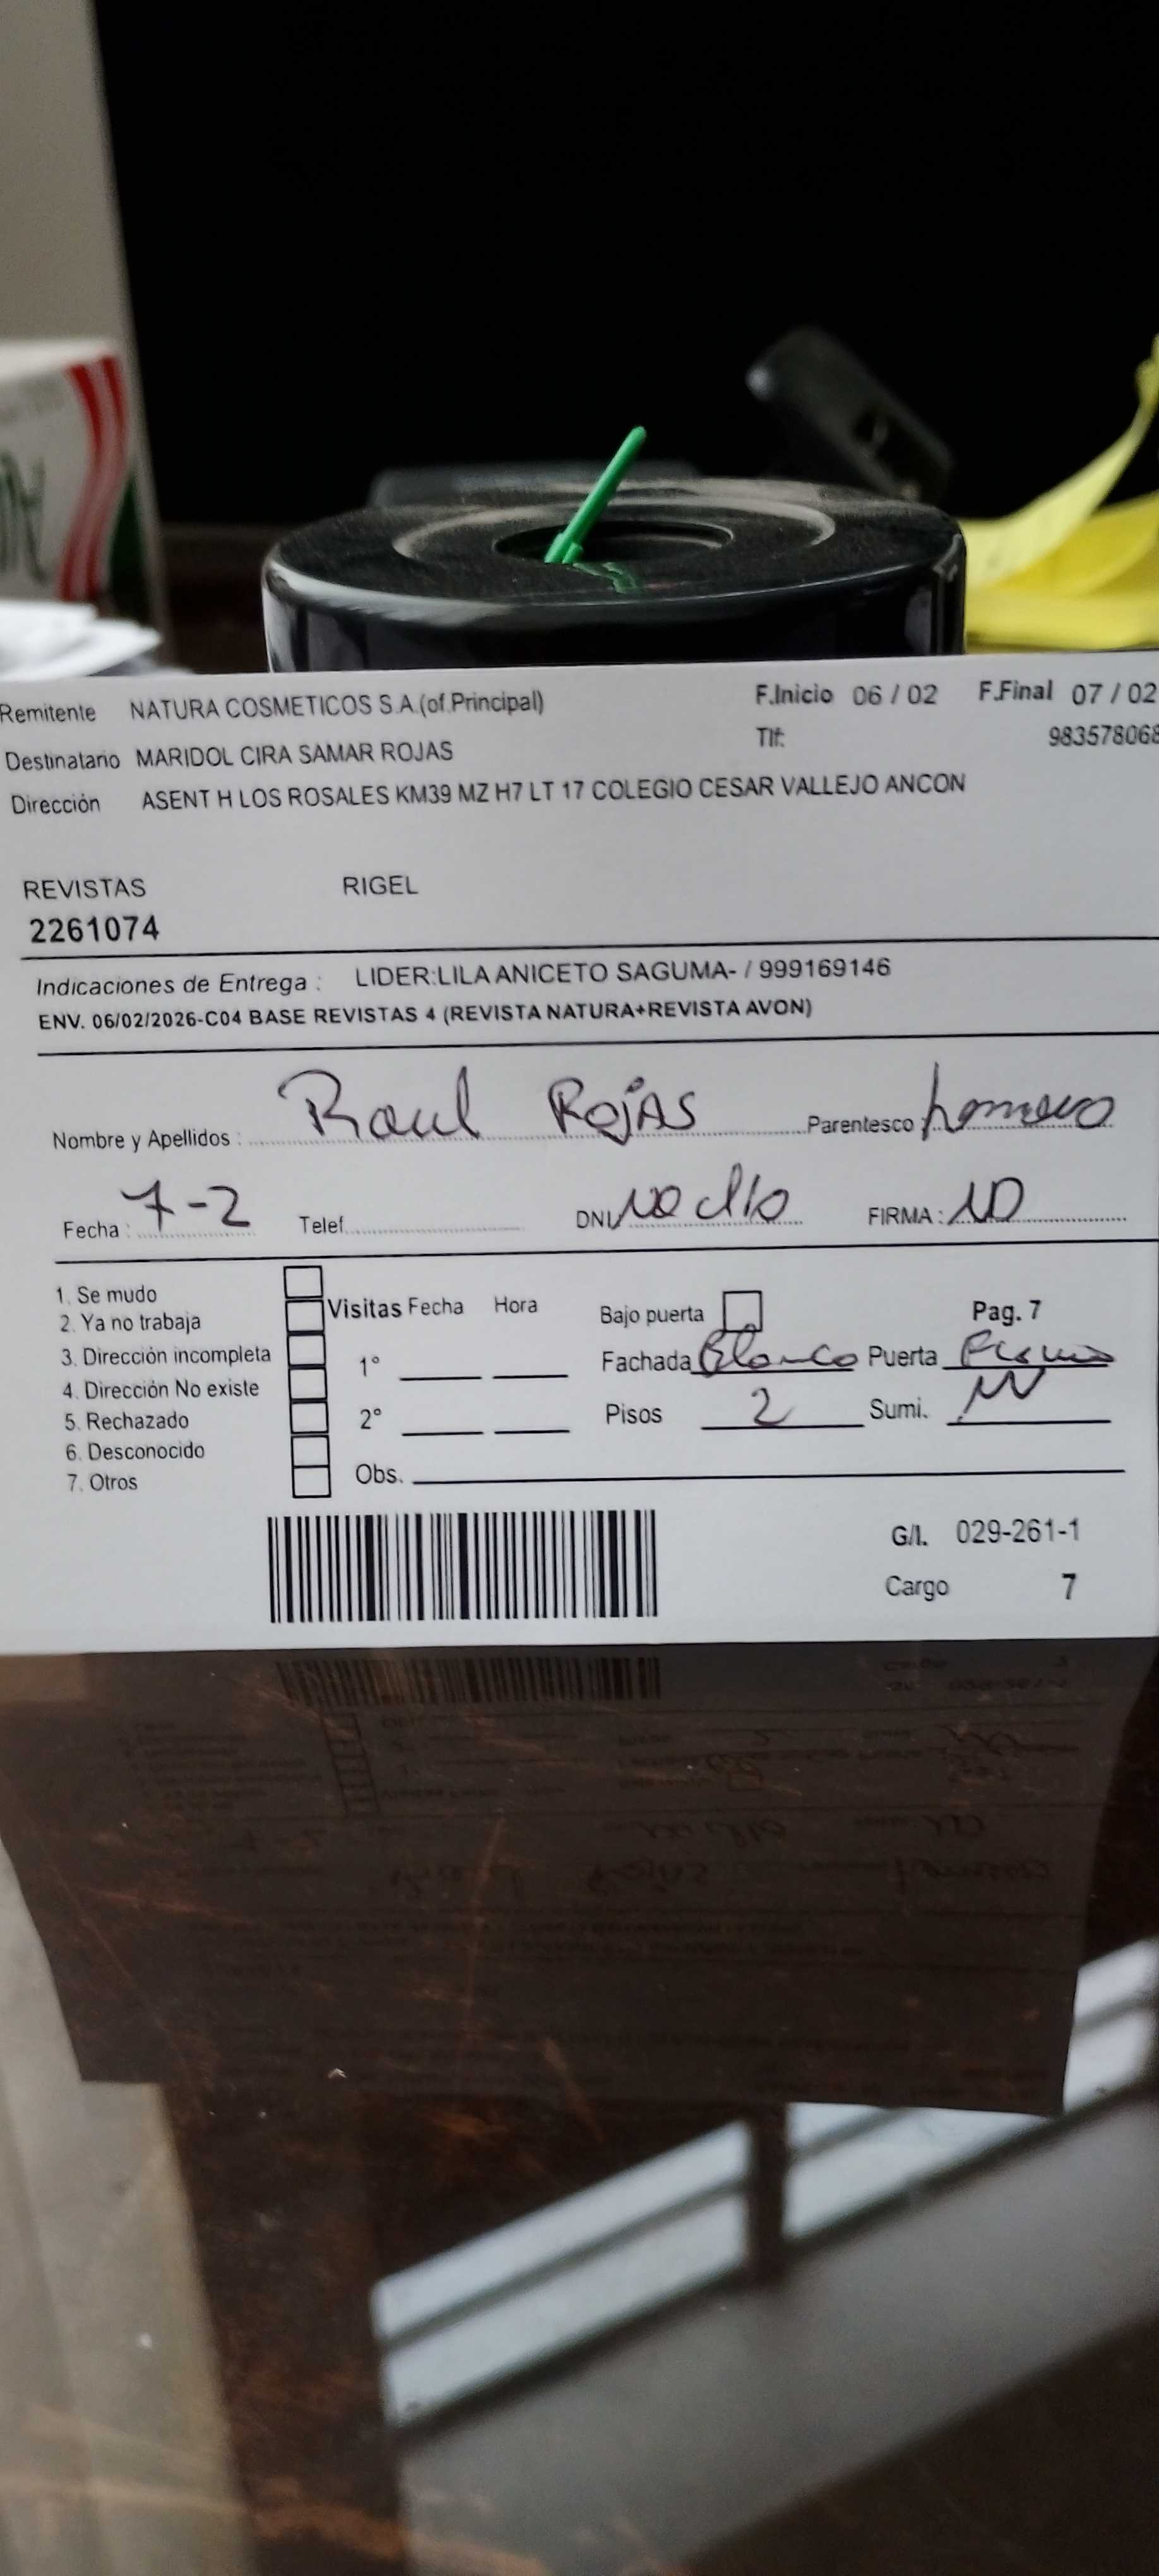 Remitente NATURA COSMETICOS S.A.(of.Principal) F.Inicio 06 / 02 F.Final 07 / 02
Destinatario MARIDOL CIRA SAMAR ROJAS Tlf: 983578068
Dirección ASENT H LOS ROSALES KM39 MZ H7 LT 17 COLEGIO CESAR VALLEJO ANCON
REVISTAS RIGEL
2261074
Indicaciones de Entrega : LIDER:LILA ANICETO SAGUMA- / 999169146
ENV. 06/02/2026-C04 BASE REVISTAS 4 (REVISTA NATURA+REVISTA AVON)
Nombre y Apellidos : Raul Rojas Parentesco :
Fecha : 7-2 Telef. DNI FIRMA :
1. Se mudo
2. Ya no trabaja
3. Dirección incompleta
4. Dirección No existe
5. Rechazado
6. Desconocido
7. Otros
Visitas Fecha Hora
1°
2°
Obs.
Bajo puerta Pag. 7
Fachada Blanco Puerta
Pisos 2 Sumi.
G/I. 029-261-1
Cargo 7